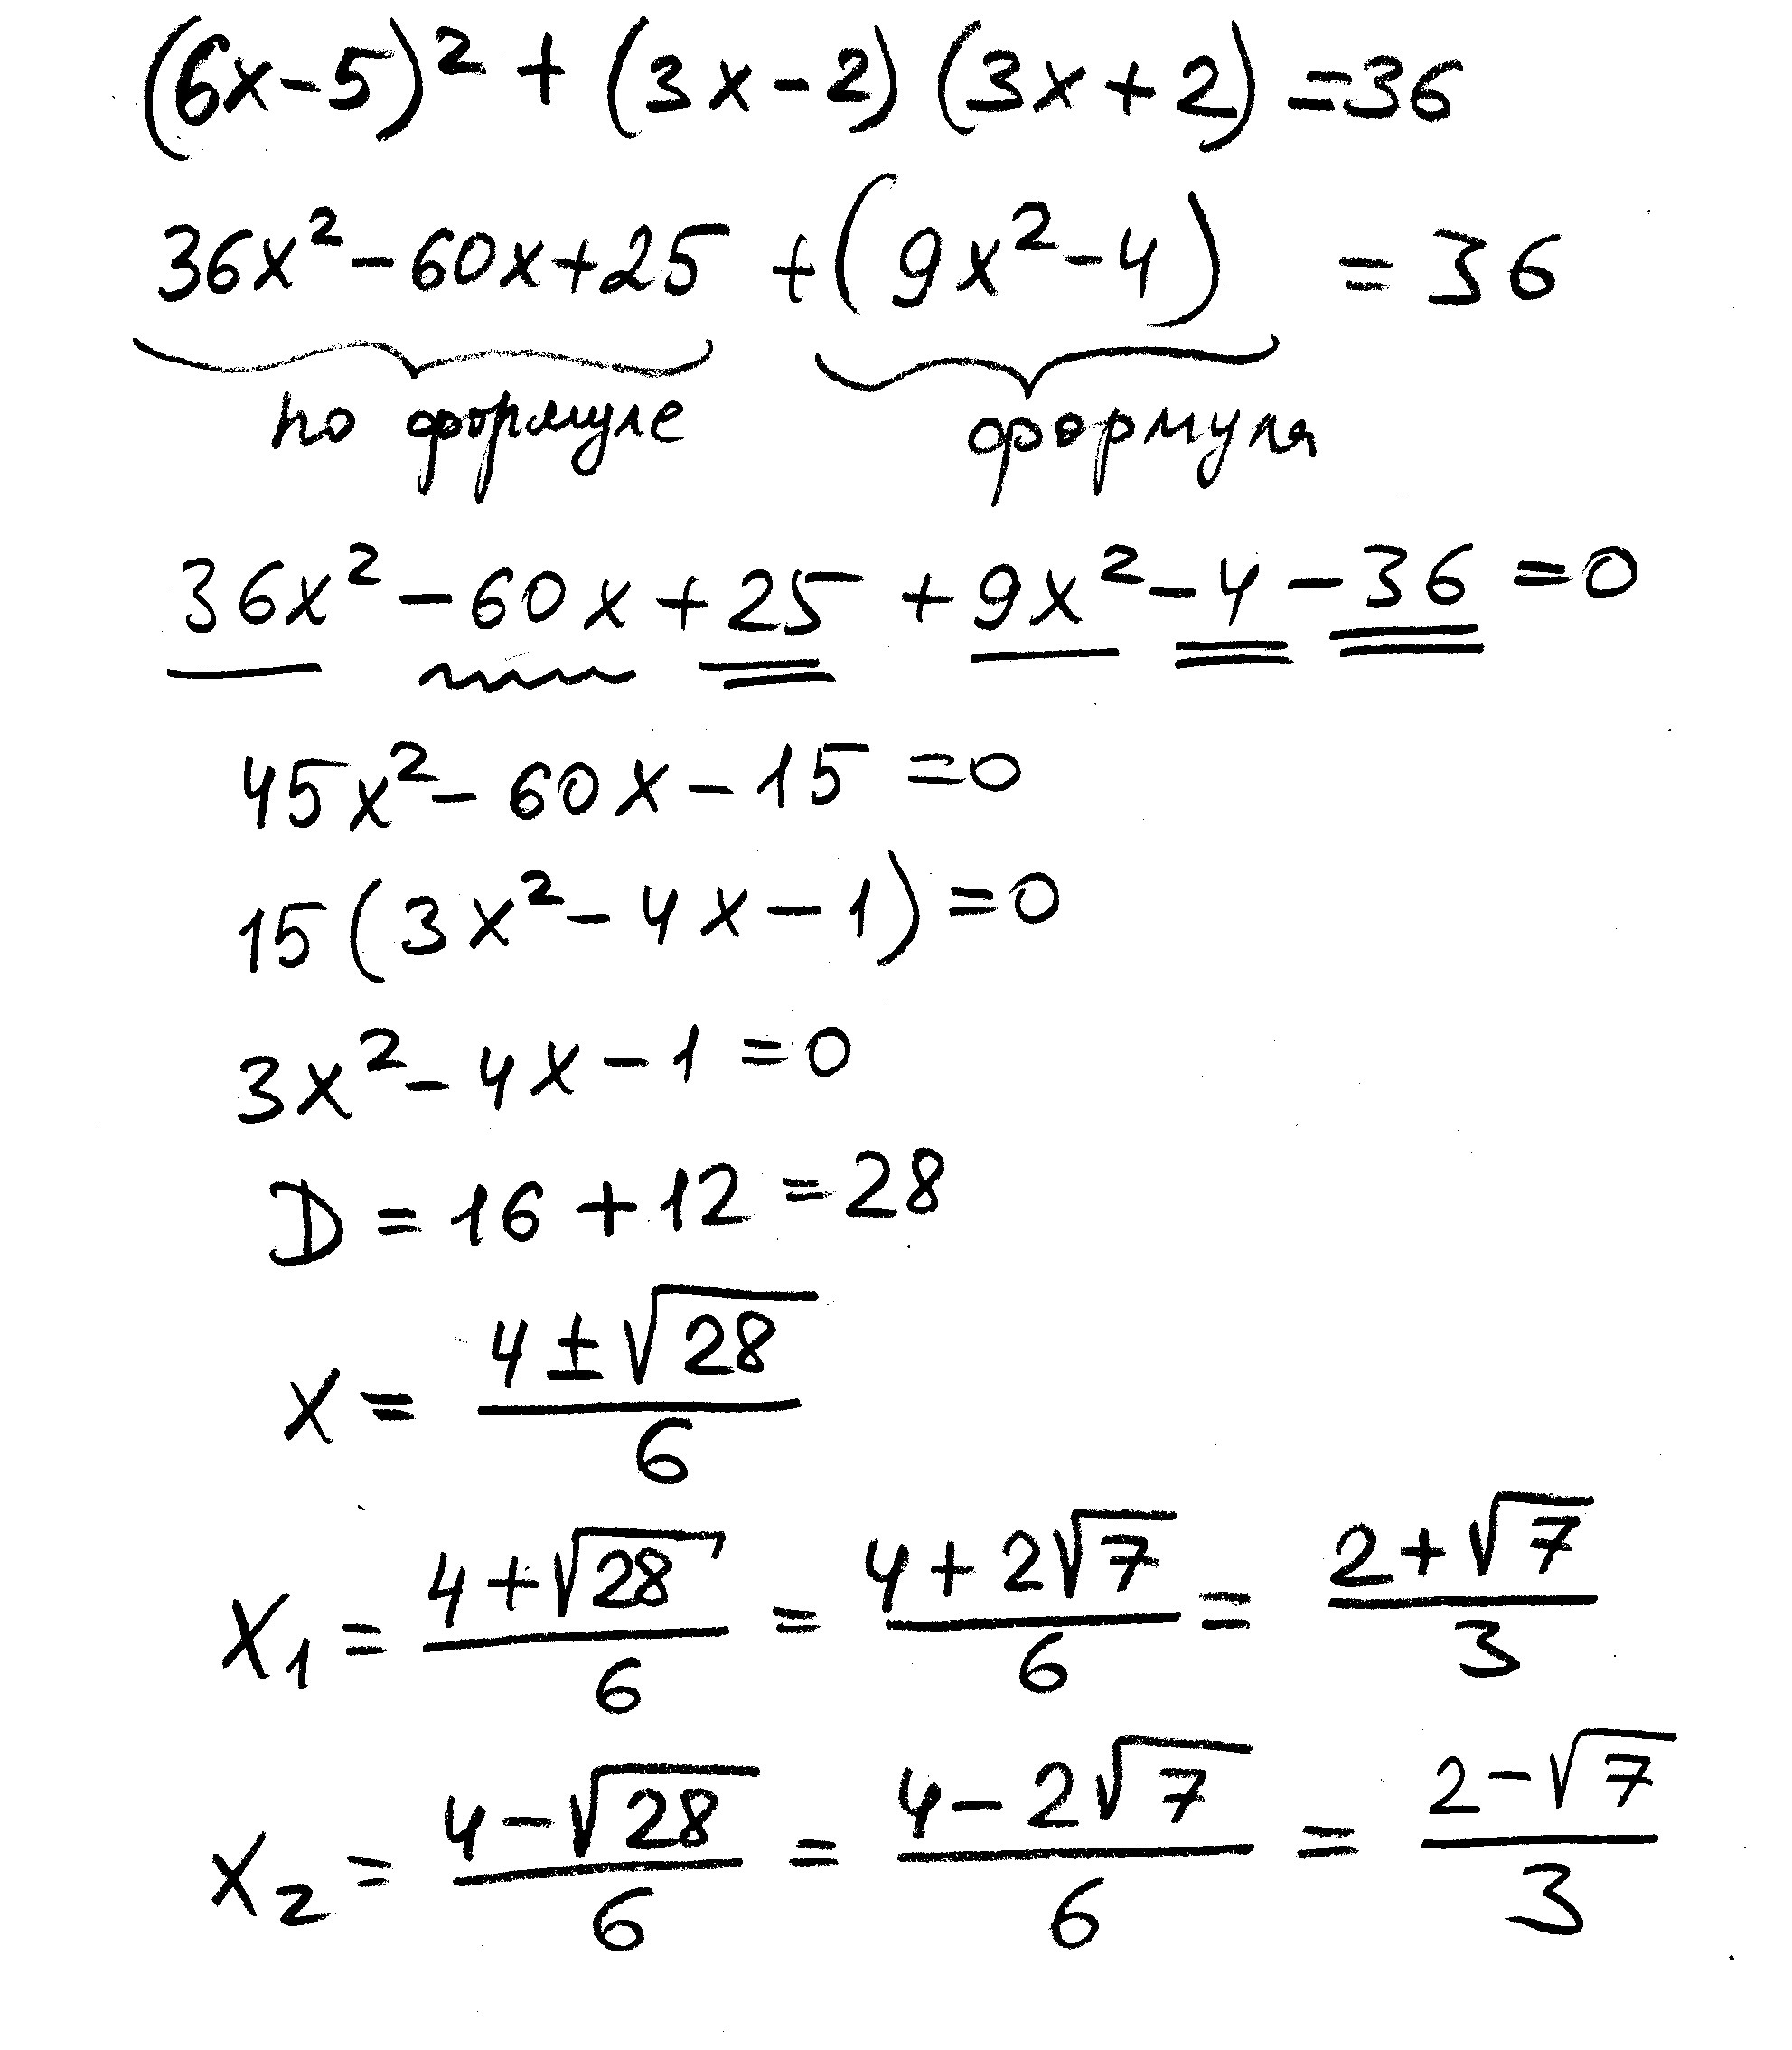 (6x-5)² + (3x-2)(3x+2)=36
36x²-60x+25 +(9x²-4) =36
по формуле формула
36x²-60x+25+9x²-4-36=0
45x²-60x-15=0
15(3x²-4x-1)=0
3x²-4x-1=0
D=16+12=28
x= (4±√28)/6
x₁= (4+√28)/6 = (4+2√7)/6 = (2+√7)/3
x₂= (4-√28)/6 = (4-2√7)/6 = (2-√7)/3